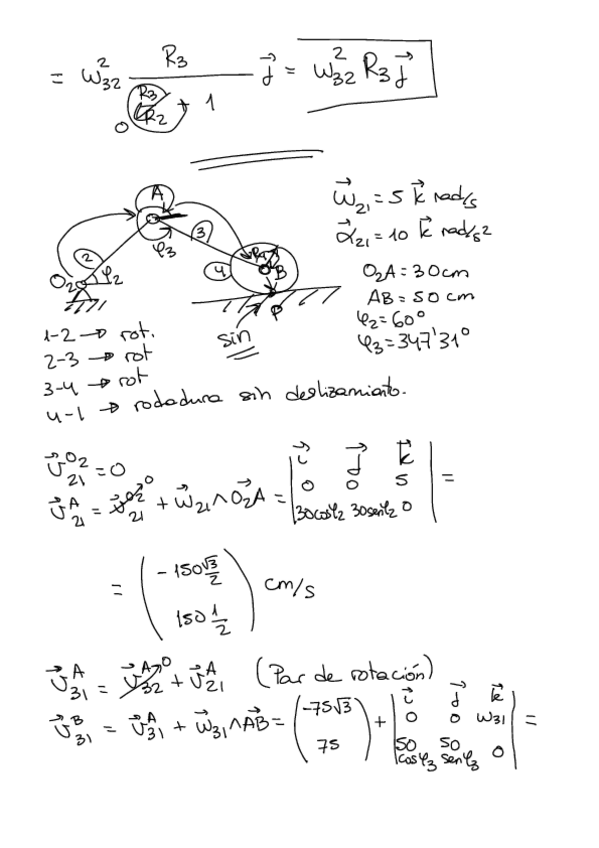 = ω²₃₂ R₃ / (R₃/R₂ + 1) j⃗ = ω²₃₂ R₃ j⃗
0
A
2
φ₃
3
O₂
φ₂
4
B
P
sin
ω⃗₂₁ = 5 k⃗ rad/s
α⃗₂₁ = 10 k⃗ rad/s²
O₂A = 30 cm
AB = 50 cm
φ₂ = 60°
φ₃ = 347'31°
1-2 → rot.
2-3 → rot
3-4 → rot
4-1 → rodadura sin deslizamiento.
v⃗₂₁^O₂ = 0
v⃗₂₁^A = v⃗₂₁^O₂ ↗0 + ω⃗₂₁ ∧ O₂A⃗ = | i⃗ j⃗ k⃗ ; 0 0 5 ; 30cosφ₂ 30senφ₂ 0 | =
= ( -150 √3/2 ; 150 1/2 ) cm/s
v⃗₃₁^A = v⃗₃₂^A ↗0 + v⃗₂₁^A (Par de rotación)
v⃗₃₁^B = v⃗₃₁^A + ω⃗₃₁ ∧ AB⃗ = ( -75√3 ; 75 ) + | i⃗ j⃗ k⃗ ; 0 0 ω₃₁ ; 50cosφ₃ 50senφ₃ 0 | =